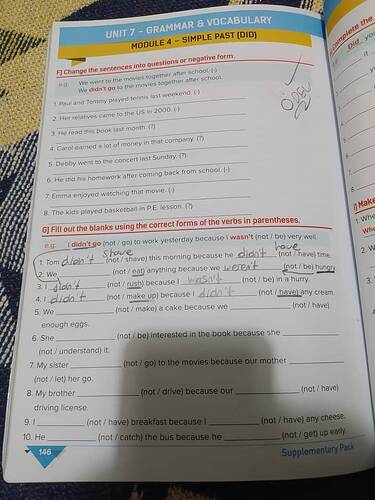 UNIT 7 – GRAMMAR & VOCABULARY
MODULE 4 – SIMPLE PAST (DID)
F) Change the sentences into questions or negative form.
e.g. We went to the movies together after school. (-)
We didn't go to the movies together after school.
1. Paul and Tommy played tennis last weekend. (-)
2. Her relatives came to the US in 2000. (-)
3. He read this book last month. (?)
4. Carol earned a lot of money in that company. (?)
5. Debby went to the concert last Sunday. (?)
6. He did his homework after coming back from school. (-)
7. Emma enjoyed watching that movie. (-)
8. The kids played basketball in P.E. lesson. (?)
G) Fill out the blanks using the correct forms of the verbs in parentheses.
e.g. I didn't go (not / go) to work yesterday because I wasn't (not / be) very well.
shave have
1. Tom didn't (not / shave) this morning because he didn't (not / have) time.
2. We (not / eat) anything because we weren't (not / be) hungry.
3. I didn't (not / rush) because I wasn't (not / be) in a hurry.
4. I didn't (not / make up) because I didn't (not / have) any cream.
5. We (not / make) a cake because we (not / have)
enough eggs.
6. She (not / be) interested in the book because she
(not / understand) it.
7. My sister (not / go) to the movies because our mother
(not / let) her go.
8. My brother (not / drive) because our (not / have)
driving license.
9. I (not / have) breakfast because I (not / have) any cheese.
10. He (not / catch) the bus because he (not / get) up early.
146
Supplementary Pack